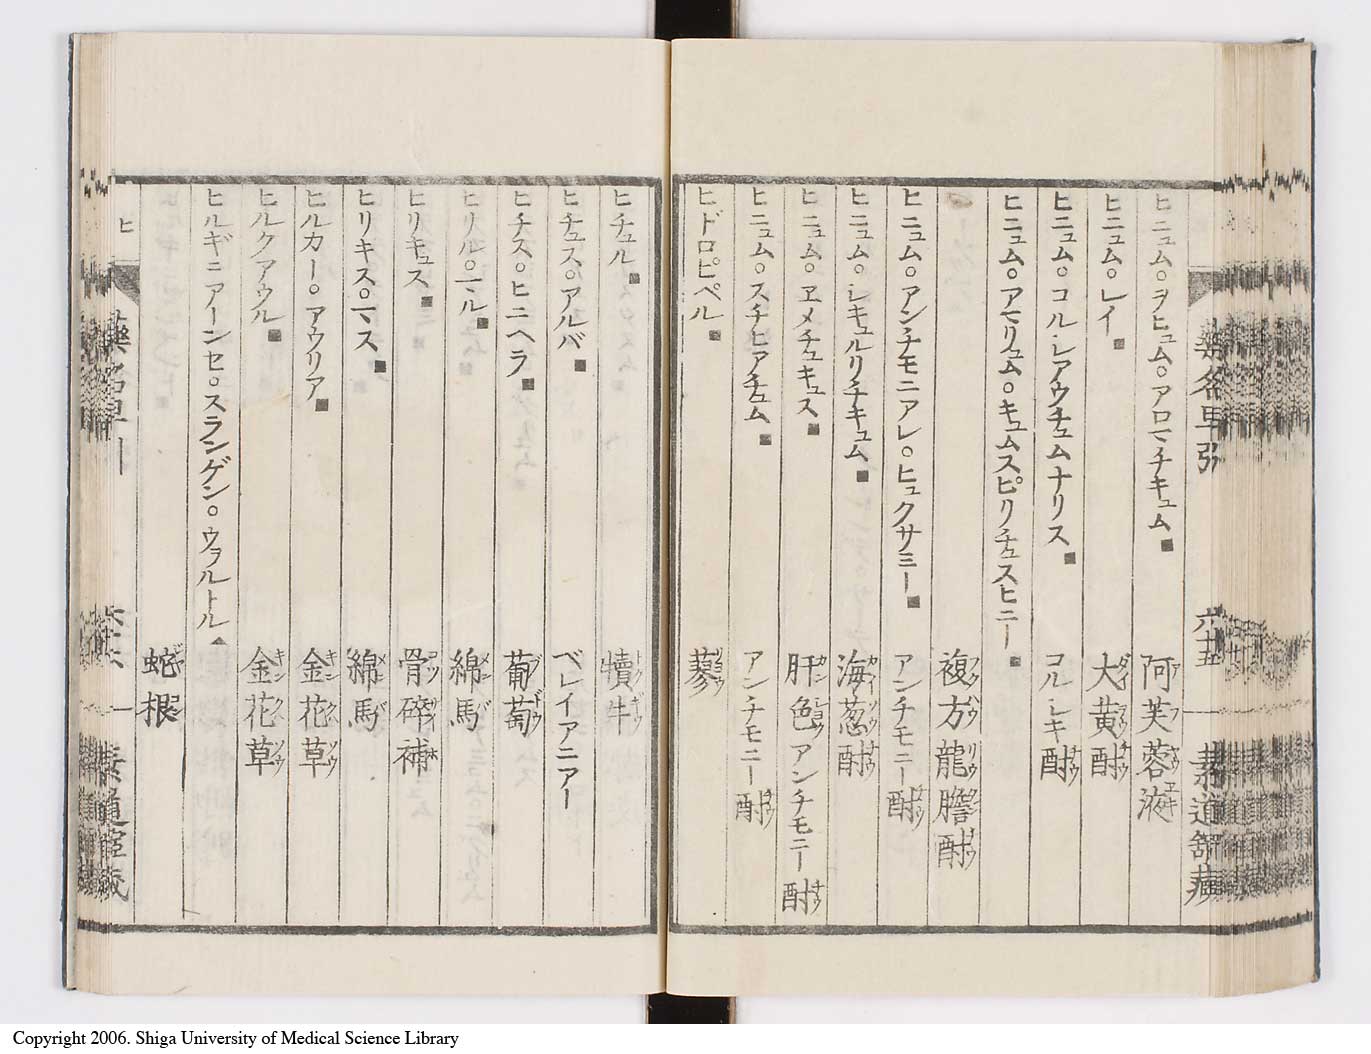 藥名早引
六十五
泰道舘藏
ヒニュム○ヲヒュム○アロマチキュム■ 阿芙蓉液
ヒニュム○レイ■ 大黄酎
ヒニュム○コル・レアウチュムナリス■ コルレキ酎
ヒニュム○アマリュム○キュムスピリチュスヒニー■
複方龍膽酎
ヒニュム○アンチモニアレ○ヒュクサミー■ アンチモニー酎
ヒニュム○レキュルリチキュム■ 海葱酎
ヒニュム○ヱメチュキュス■ 肝色アンチモニー酎
ヒニュム○スチヒアチュム■ アンチモニー酎
ヒドロピペル■ 蓼
ヒチュル■ 犢牛
ヒチュス○アルバ■ ベレイアニアー
ヒチス○ヒニヘラ■ 葡萄
ヒリル○マル■ 綿馬
ヒリキュス■ 骨碎補
ヒリキス○マス■ 綿馬
ヒルカー○アウリア■ 金花草
ヒルクアウル■ 金花草
ヒルギニアーンセ○スランゲン○ウヲルトル▲
蛇根
ヒ